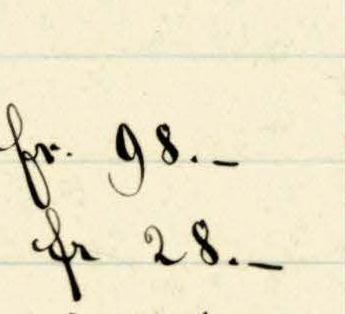 fr. 98.—
fr 28.—